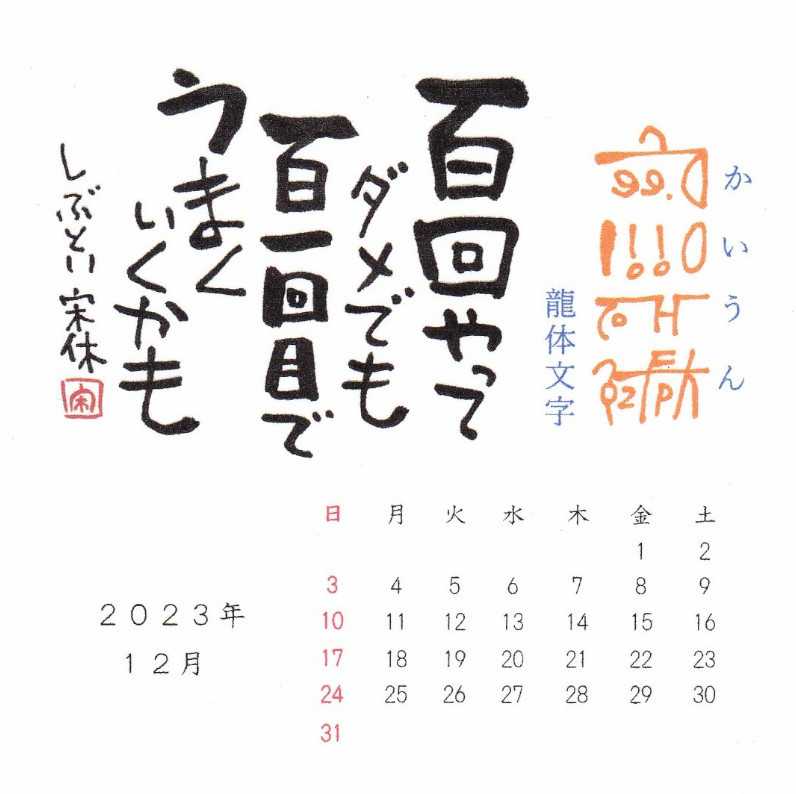 かいうん
龍体文字
百回やって
ダメでも
百一回目で
うまく
いくかも
しぶとい 宋休
日 月 火 水 木 金 土
1 2
3 4 5 6 7 8 9
10 11 12 13 14 15 16
17 18 19 20 21 22 23
24 25 26 27 28 29 30
31
2023年
12月